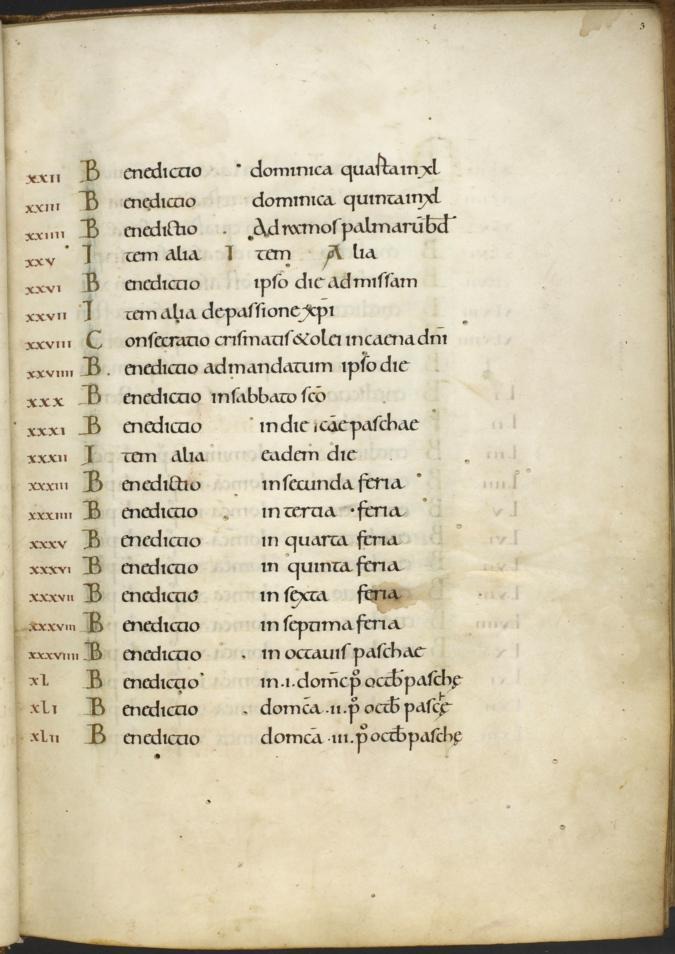 3
xxii Benedictio dominica quarta in xl
xxiii Benedictio dominica quinta in xl
xxiiii Benedictio Ad ramos palmarū bd̄
xxv Item alia Item Alia
xxvi Benedictio ipso die ad missam
xxvii Item alia de passione xp̄i
xxviii Consecratio crismatis & olei in caena dn̄i
xxviiii Benedictio ad mandatum ipso die
xxx Benedictio in sabbato sc̄o
xxxi Benedictio in die sc̄ae paschae
xxxii Item alia eadem die
xxxiii Benedictio in secunda feria
xxxiiii Benedictio in tertia feria
xxxv Benedictio in quarta feria
xxxvi Benedictio in quinta feria
xxxvii Benedictio in sexta feria
xxxviii Benedictio in septima feria
xxxviiii Benedictio in octauis paschae
xl Benedictio in .i. dom̄c p̊ octƀ paschę
xli Benedictio domc̄a .ii. p̊ octƀ pascę
xlii Benedictio domc̄a .iii. p̊ octƀ paschę